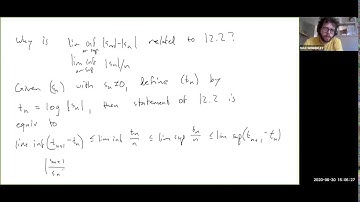 Why is lim inf or sup |sn|-|sn| related to 12.2?
lim inf or sup |sn|/n
Given (sn) with sn≠0, define (tn) by
tn = log |sn|, then statement of 12.2 is
equiv to
lim inf (tn+1 - tn) ≤ lim inf tn/n ≤ lim sup tn/n ≤ lim sup (tn+1 - tn)
|sn+1/sn
2020-06-30 15:06:27